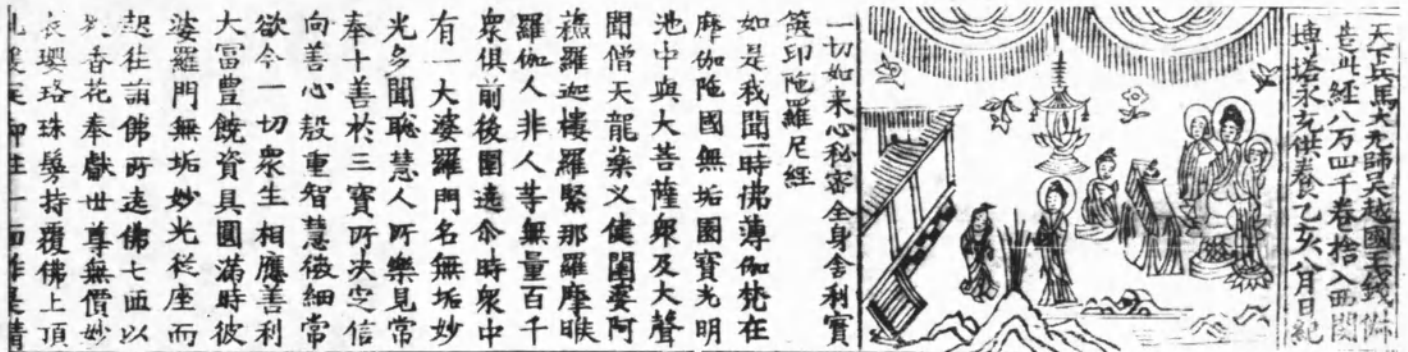 天下兵馬大元帥吳越國王錢俶
造此經八万四千卷捨入西關
塼塔永充供養乙亥八月日紀
一切如来心秘密全身舍利寶
篋印陁羅尼經
如是我聞一時佛薄伽梵在
摩伽陁國無垢園寶光明
池中與大菩薩衆及大聲
聞僧天龍藥义健闥婆阿
蘓羅迦樓羅緊那羅摩睺
羅伽人非人等無量百千
衆俱前後圍遶尒時衆中
有一大婆羅門名無垢妙
光多聞聡慧人所樂見常
奉十善於三寶所决定信
向善心殷重智慧微細常
欲令一切衆生相應善利
大富豊饒資具圓滿時彼
婆羅門無垢妙光從座而
起往詣佛所遶佛七匝以
衆香花奉獻世尊無價妙
衣瓔珞珠鬘持覆佛上頂
却住一面作是請